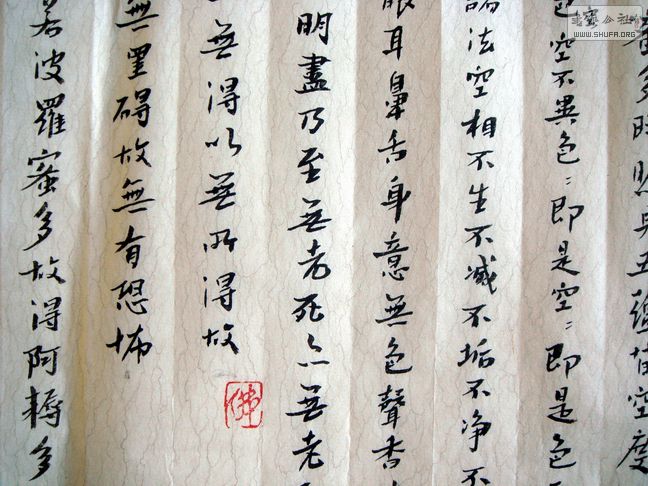 多時照見五蘊皆空度
色空不異色〻即是空〻即是色
法空相不生不滅不垢不净不
眼耳鼻舌身意無色聲香
明盡乃至無老死亦無老
無得以無所得故
無罣碍故無有恐怖
若波羅蜜多故得阿耨多
佛
書法公社
WWW.SHUFA.ORG